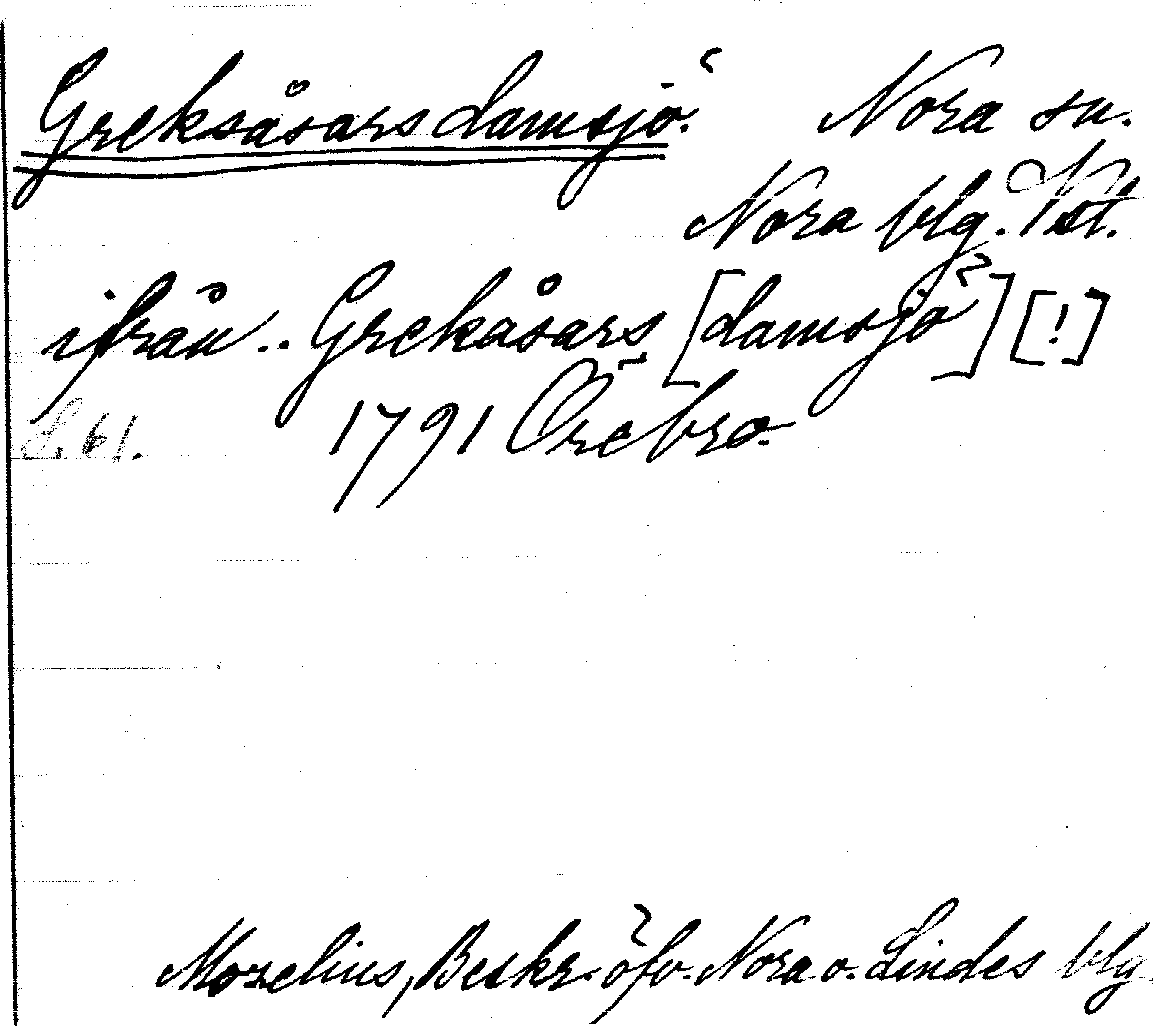 Greksåsars damsjö. Nora sn.
Nora blg. Vstl.
ifrån .. Grekåsars [damsjö] [!]
S. 61. 1791 Örebro.
Morelius, Beskr. öfv. Nora o. Lindes blg.